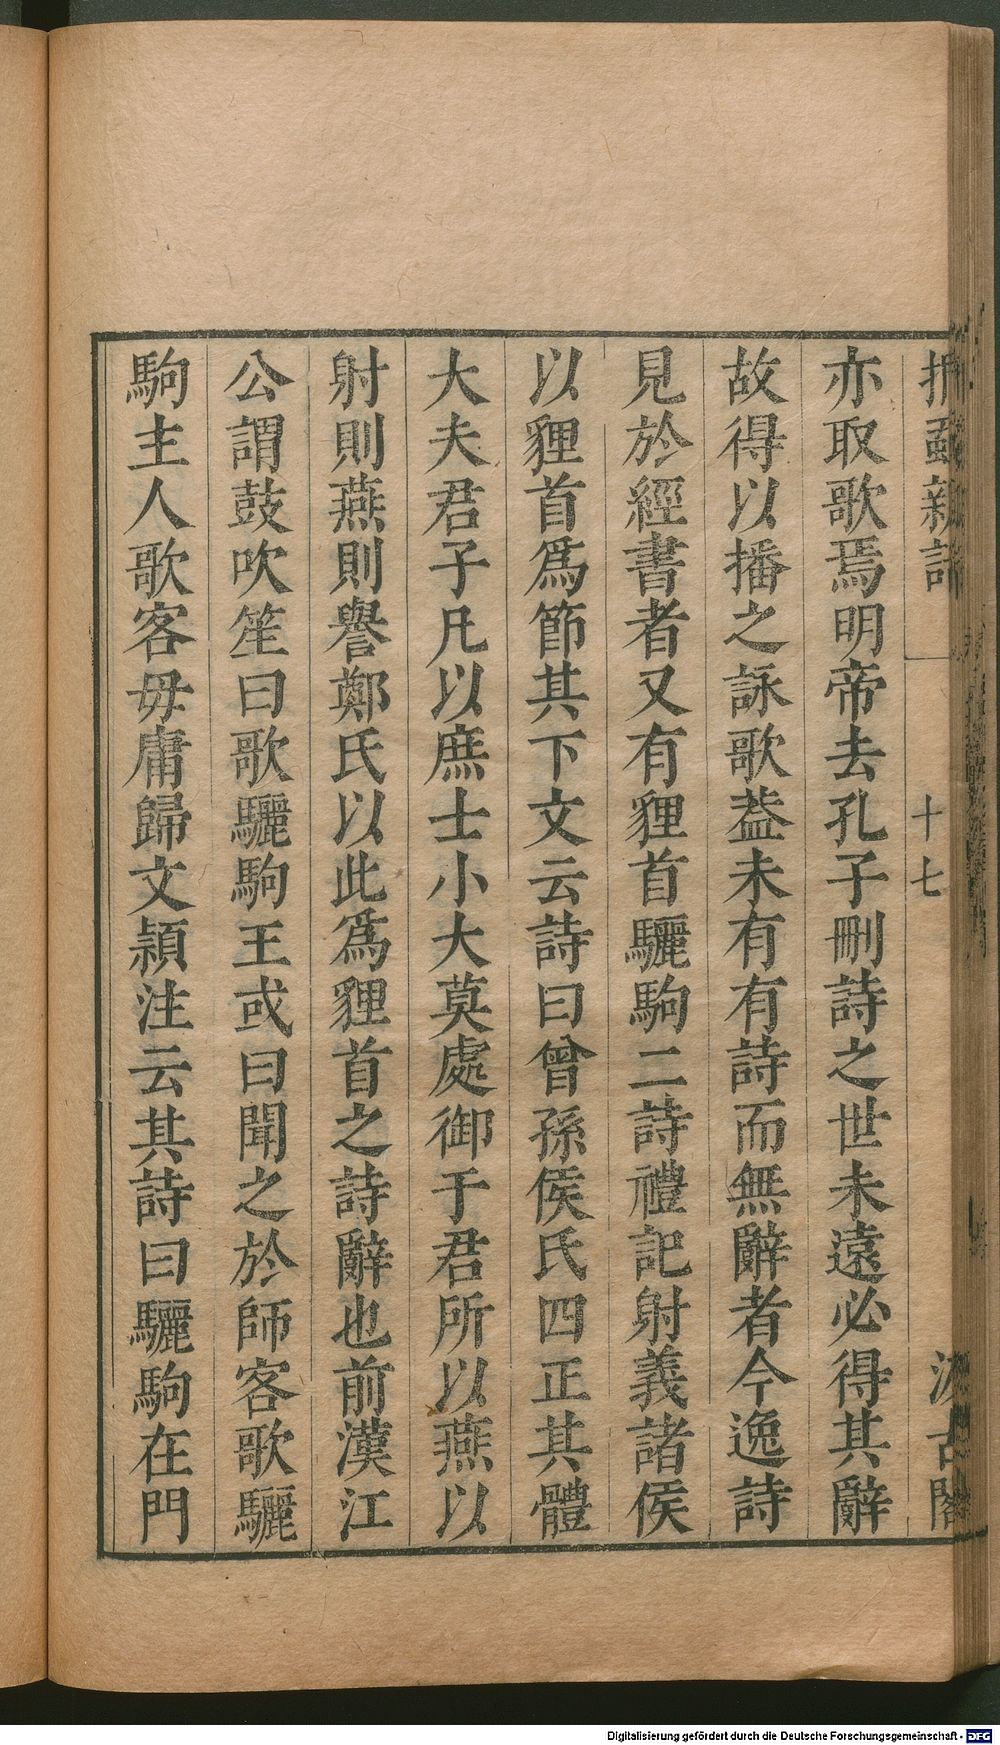 捫蝨新話 十七 汲古閣
亦取歌焉明帝去孔子刪詩之世未遠必得其辭
故得以播之詠歌葢未有有詩而無辭者今逸詩
見於經書者又有貍首驪駒二詩禮記射義諸侯
以貍首爲節其下文云詩曰曾孫侯氏四正其體
大夫君子凡以庶士小大莫處御于君所以燕以
射則燕則譽鄭氏以此爲貍首之詩辭也前漢江
公謂鼓吹笙曰歌驪駒王或曰聞之於師客歌驪
駒主人歌客毋庸歸文穎注云其詩曰驪駒在門
Digitalisierung gefördert durch die Deutsche Forschungsgemeinschaft - DFG